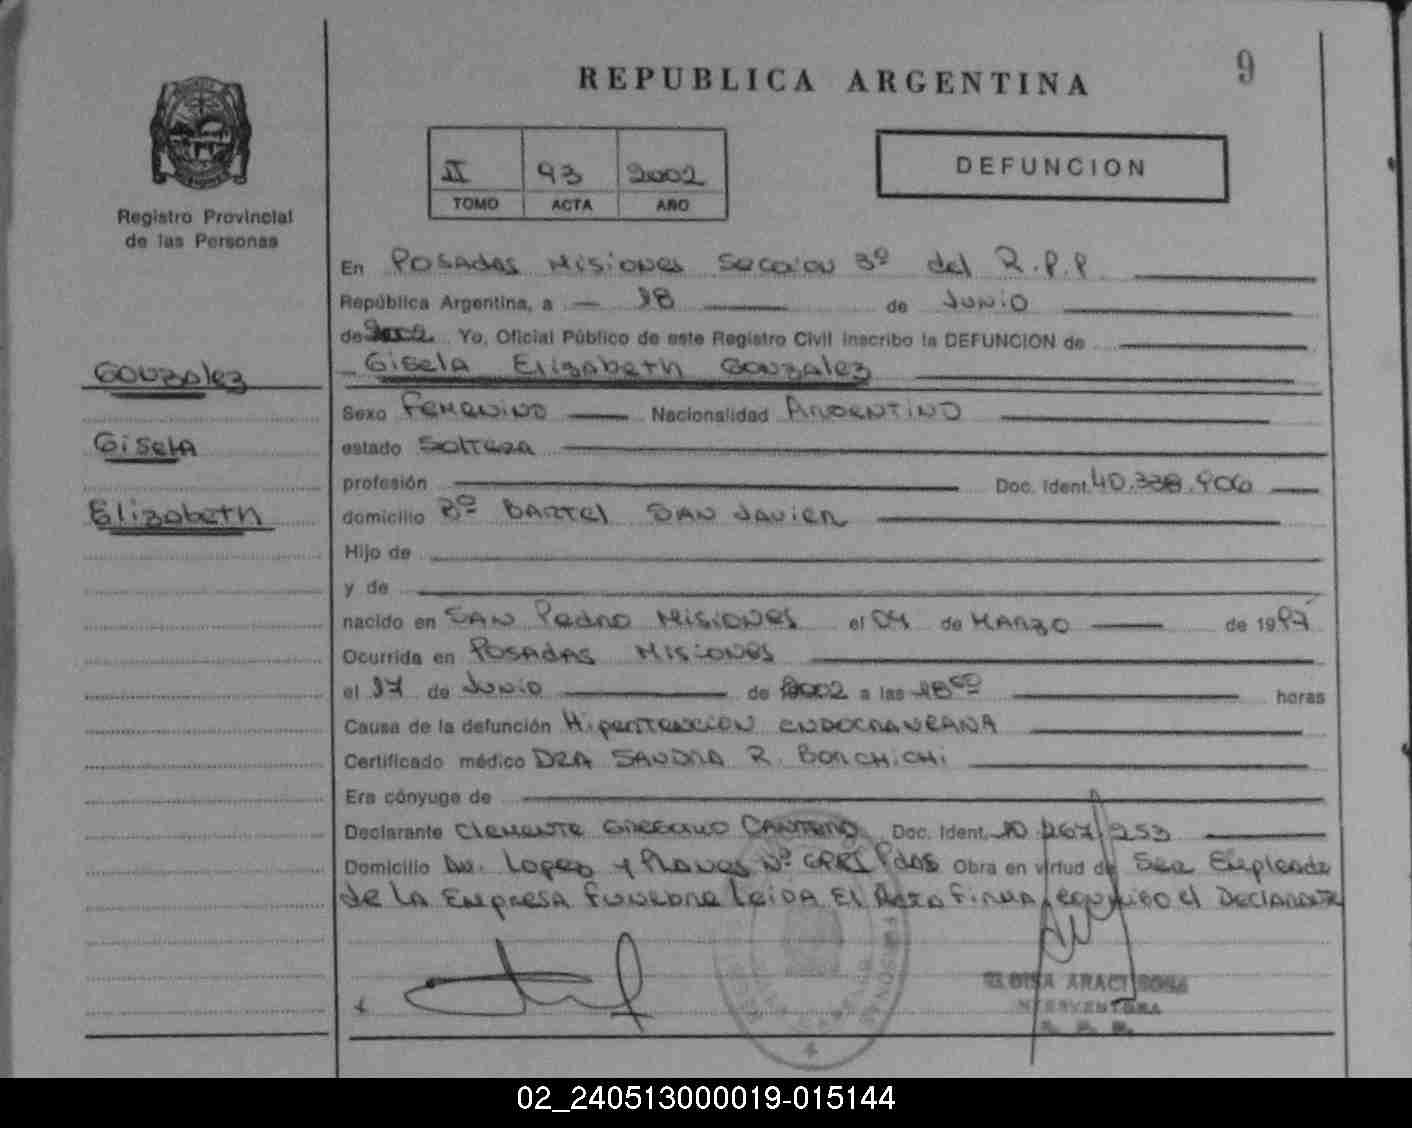 9
REPUBLICA ARGENTINA
II 93 2002
TOMO ACTA AÑO
DEFUNCION
Registro Provincial
de las Personas
En Posadas Misiones Seccion 3º del R.P.P
República Argentina, a 18 de Junio
de 2002 Yo, Oficial Público de este Registro Civil inscribo la DEFUNCION de
Gisela Elizabeth Gonzalez
Gonzalez
Gisela
Elizabeth
Sexo Femenino Nacionalidad Argentino
estado Soltera
profesión Doc. Ident. 40.338.906
domicilio Bº Bartel San Javier
Hijo de
y de
nacido en San Pedro Misiones el 04 de Marzo de 1997
Ocurrida en Posadas Misiones
el 17 de Junio de 2002 a las 18 horas
Causa de la defunción Hipertencion endocraneana
Certificado médico Dra Sandra R. Borchichi
Era cónyuge de
Declarante Clemente Gregorio Cantero Doc. Ident. 10.267.253
Domicilio Av. Lopez y Planes Nº Pdas Obra en virtud de Ser Empleado
de la Empresa Funebre Leida El Acta Firma conmigo el Declarante
ARACI ROSA
INTERVENTORA
02_240513000019-015144